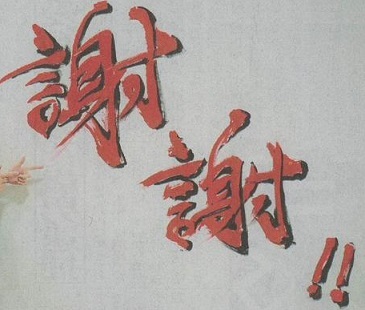 謝謝!!